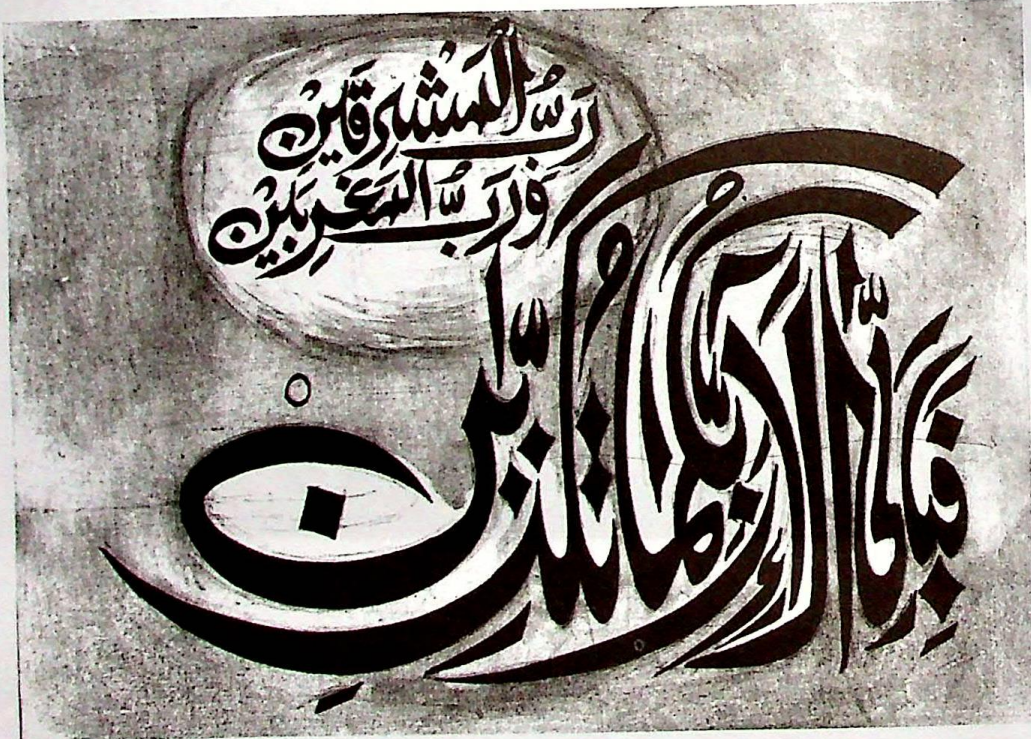 رَبُّ الْمَشْرِقَيْنِ
وَرَبُّ الْمَغْرِبَيْنِ
فَبِاَيِّ اٰلَآءِ رَبِّكُمَا تُكَذِّبٰنِ